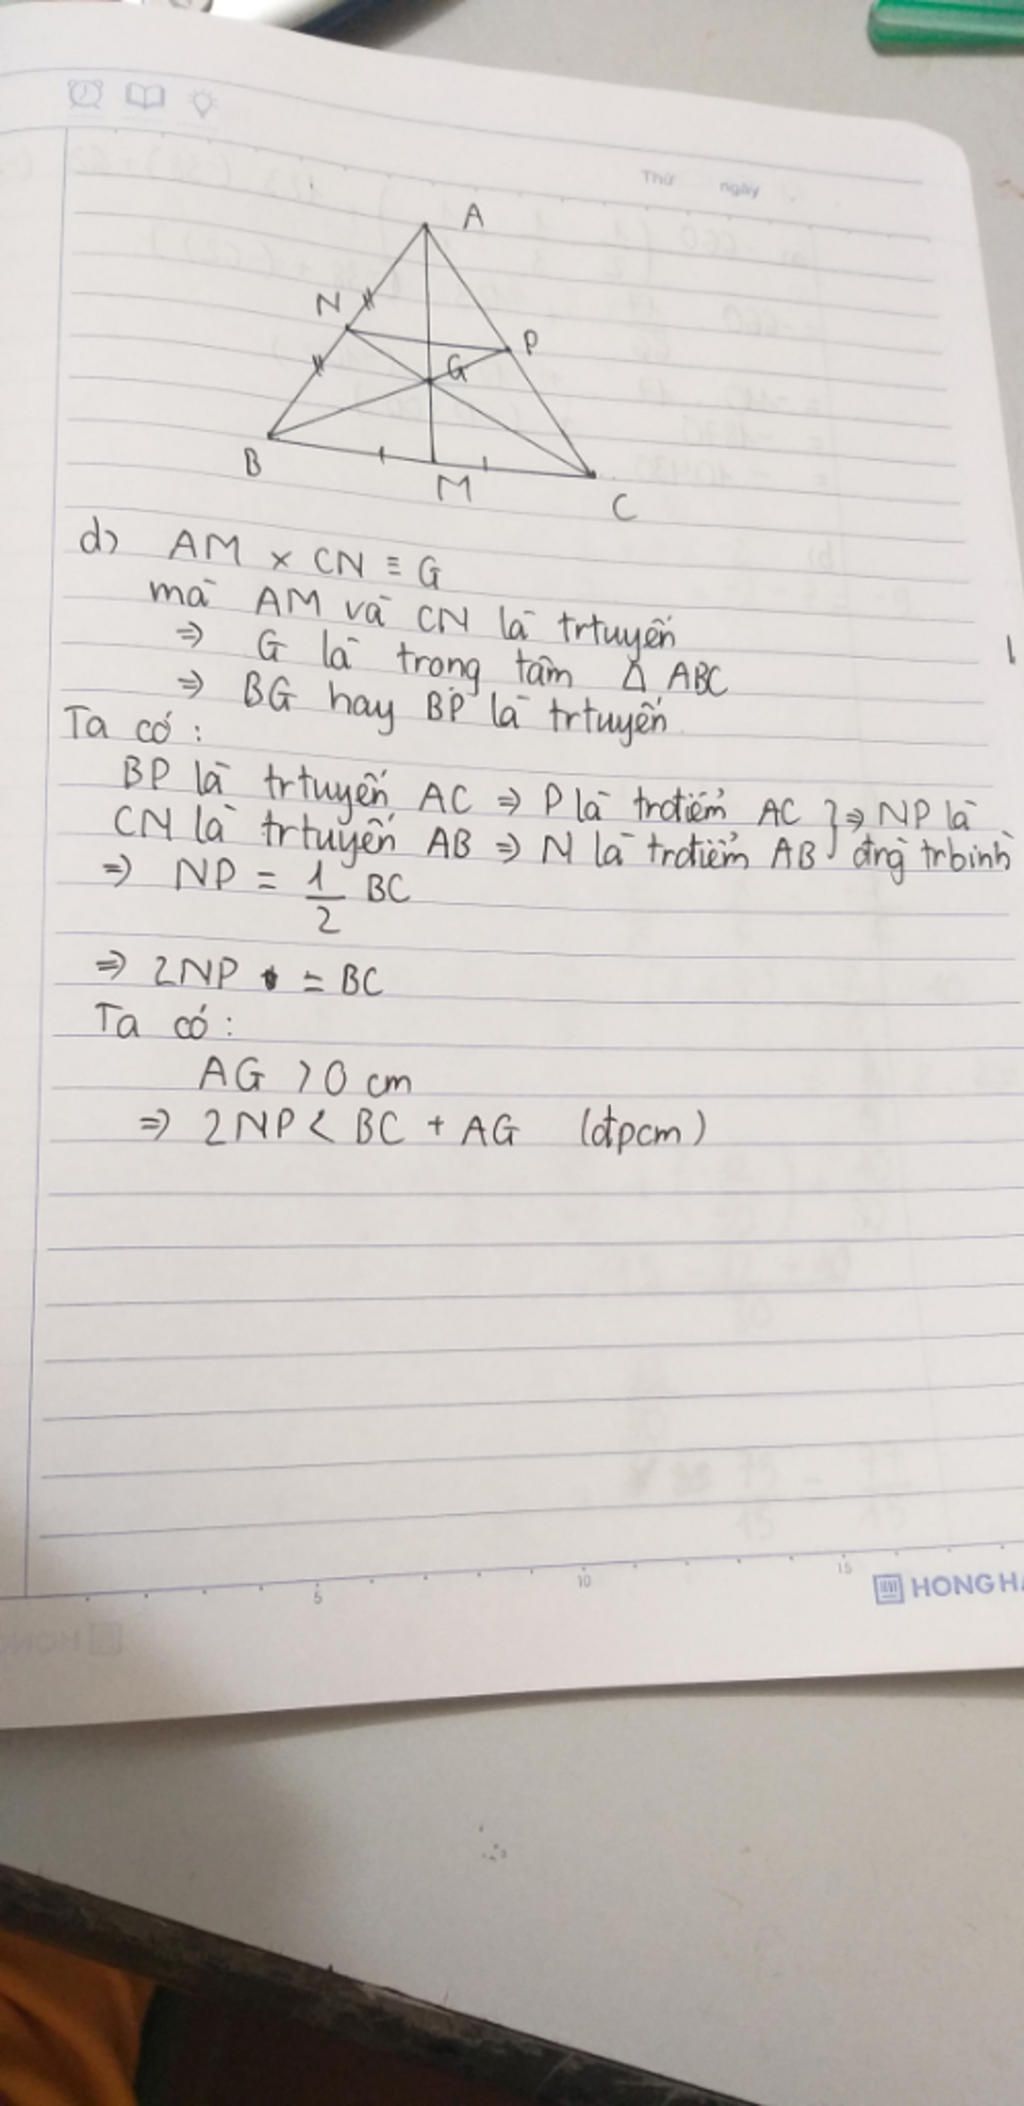 Thứ ngày
A
N
P
G
B
M
C
d) AM x CN ≡ G
mà AM và CN là trtuyến
⇒ G là trong tâm Δ ABC
⇒ BG hay BP là trtuyến
Ta có:
BP là trtuyến AC ⇒ P là trđiểm AC } ⇒ NP là
CN là trtuyến AB ⇒ N là trđiểm AB } đng trbinh
⇒ NP = 1/2 BC
⇒ 2NP = BC
Ta có:
AG > 0 cm
⇒ 2NP < BC + AG (đpcm)
5 10 15
HONG HA